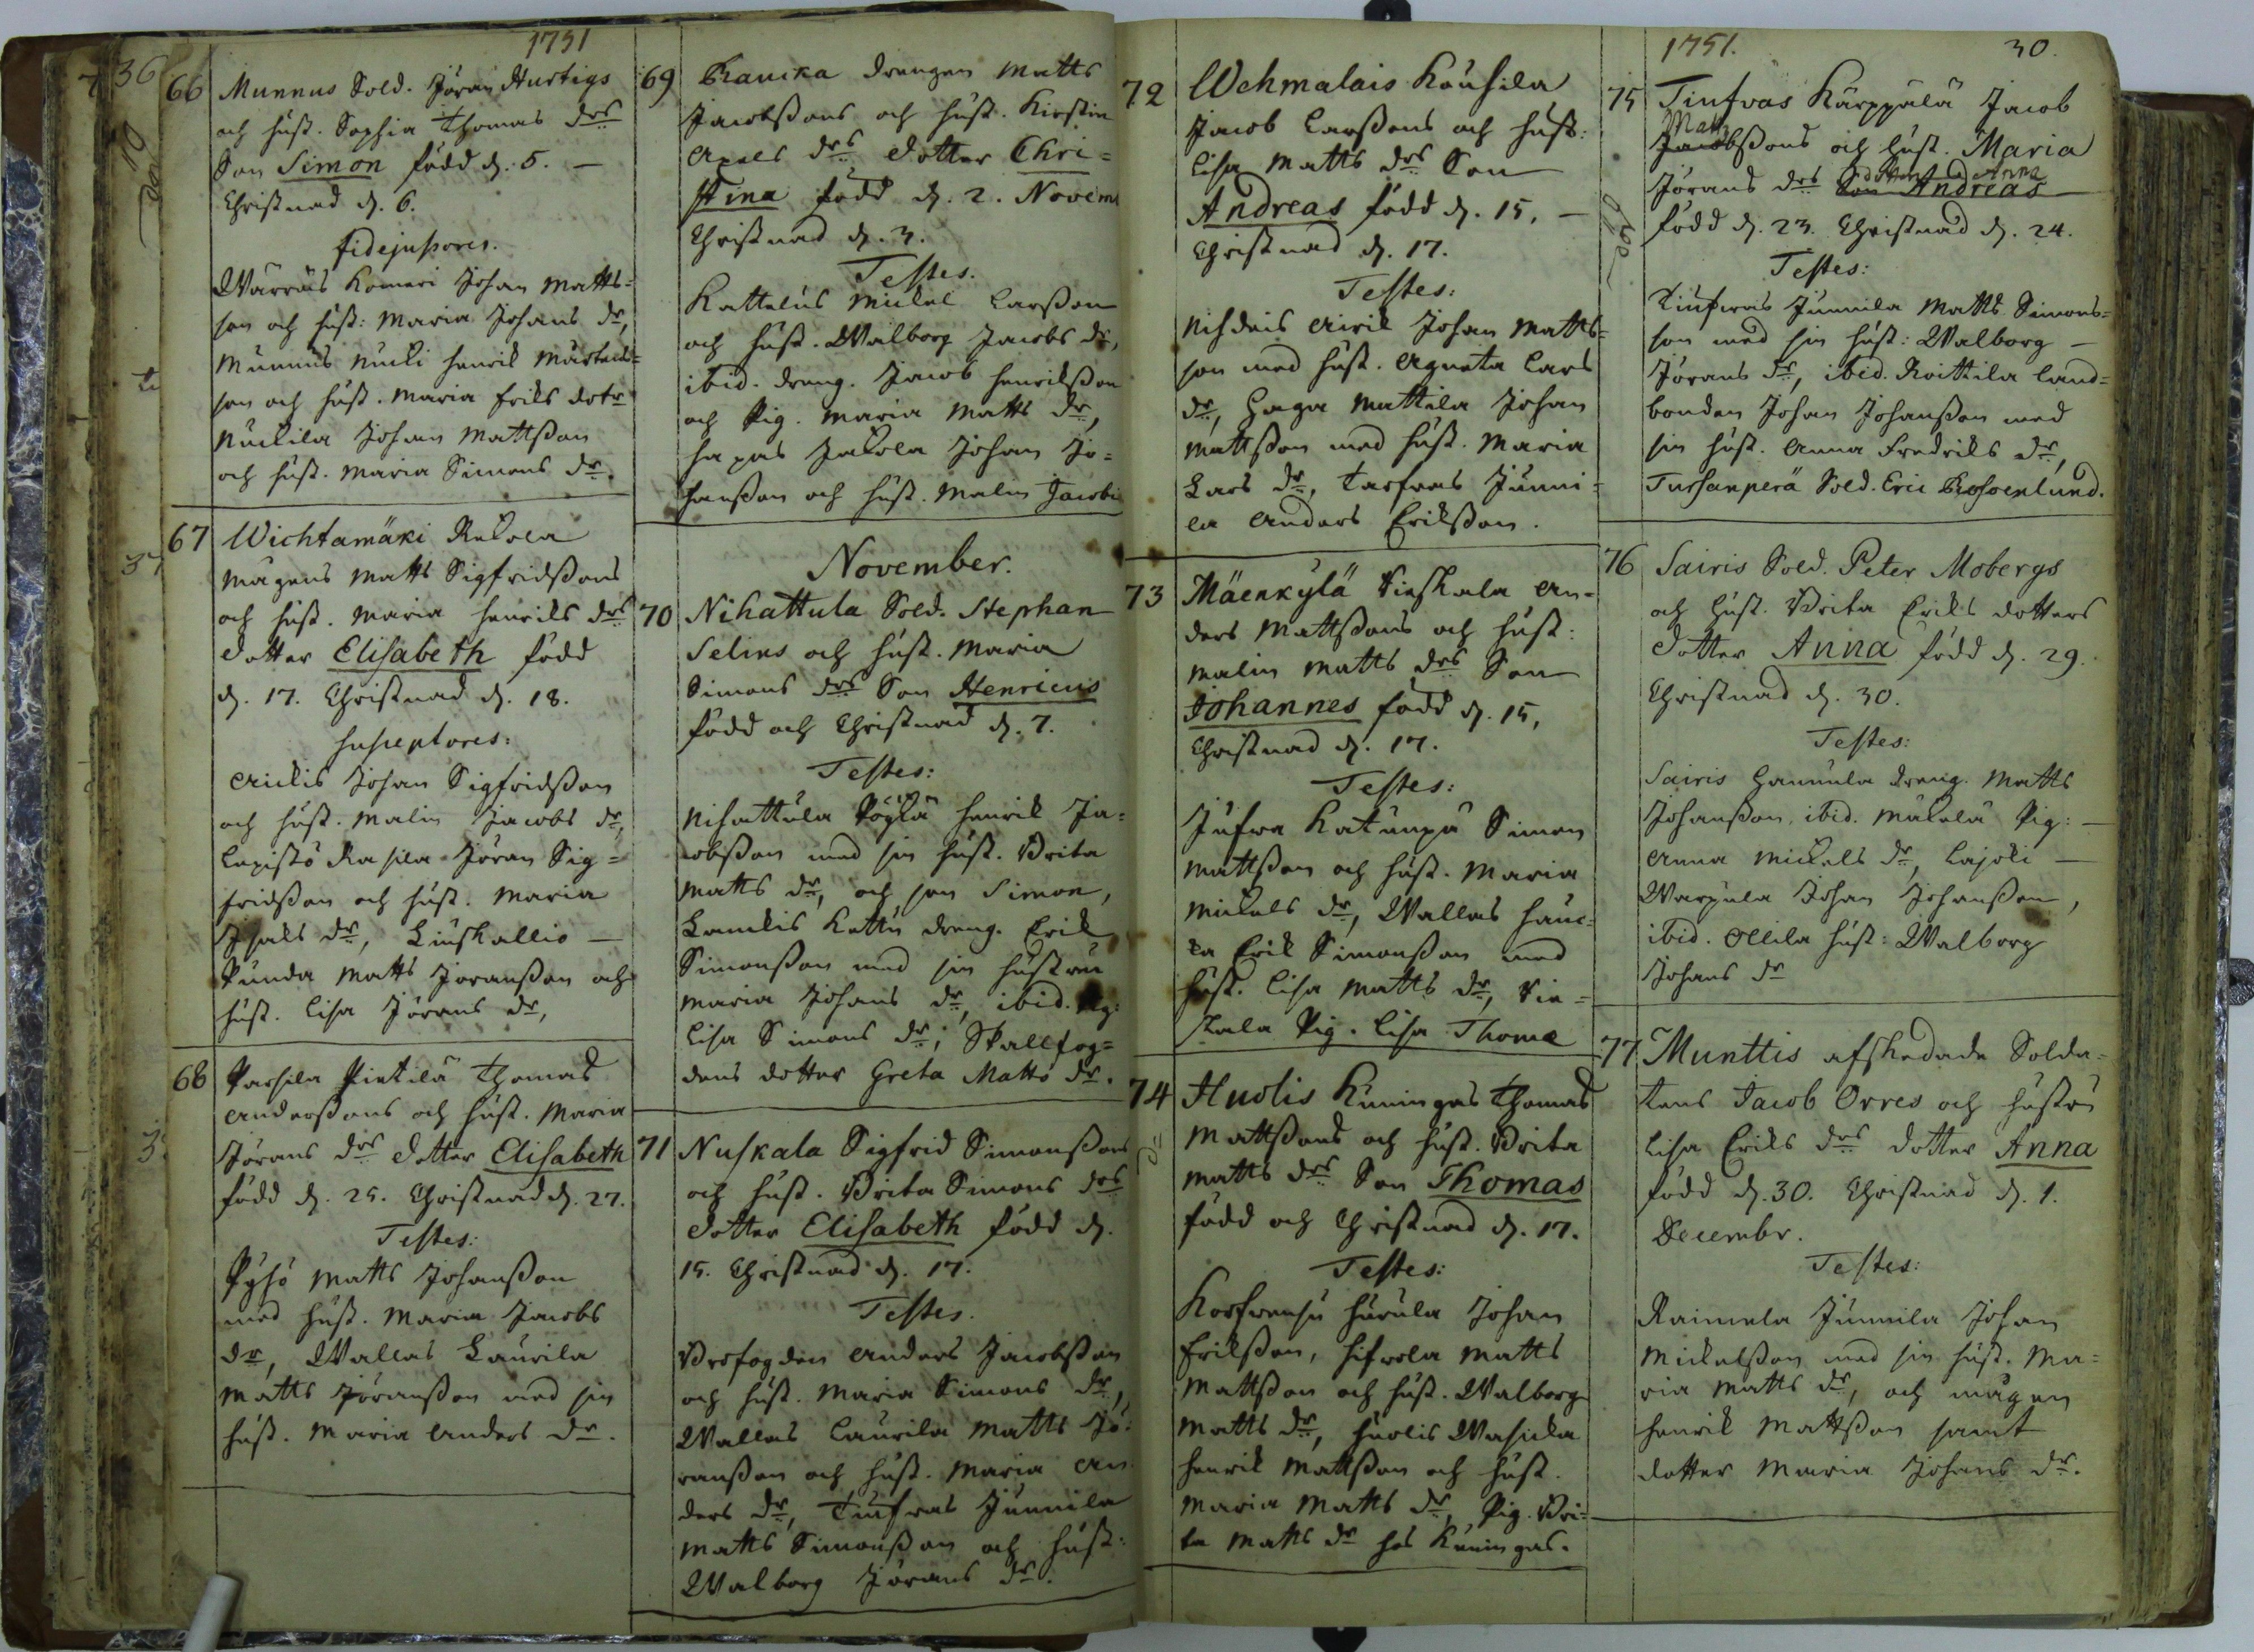 1751
66 Munnus Sold. Jöran Hurtigs
och hust. Sophia Thomas drs
Son Simon född d. 5. —
Christnad d. 6.
fidejussores.
Wärräis Komeri Johan Matts=
son och hust: Maria Johans dr,
Munnus Nucki Henrik Mårtens=
son och hust. Maria Eriks dotr
Nuckila Johan Mattsson
och hust. Maria Simons dr.
67 Wichtamäki Rekola
mågens Matts Sigfridssons
och hust. Maria Henriks drs
dotter Elisabeth född
d. 17. Christnad d. 18.
Susceptores:
Johan Sigfridsson
och hust. Malin Jacobs dr,
Lepistö Rasila Jöran Sig=
fridsson och hust. Maria
Isaks dr, Liuskallio —
Punda Matts Joransson och
hust. Lisa Jörans dr,
68 Parsila Pietilä Thomas
Anderssons och hust. Maria
Jörans drs dotter Elisabeth
född d. 25. Christnad d. 27.
Testes:
Pyhö Matts Johansson
med hust. Maria Jacobs
dr, Wallas Laurila
Matts Jöransson med sin
hust. Maria Anders dr.
69 Raucka drengen Matts
Jacobssons och hust. Kirstin
Axels drs dotter Chri=
stina född d. 2. Novem
Christnad d. 3.
Testes.
Kattelus Mickel Larsson
och hust. Walborg Jacobs dr,
ibid. dreng. Jacob Henriksson
och Pig. Maria Matts dr,
Hapas Jackola Johan Jo=
hansson och hust. Malin Jacobs
November.
70 Nihattula Sold. Stephan
Selins och hust. Maria
Simons drs Son Henricus
född och Christnad d. 7.
Testes:
Nihattula Henrik Ja=
cobsson med sin hust. Brita
Matts dr, och son Simon,
Lamckis Kettu dreng. Erik
Simonsson med sin hustru
Maria Johans dr, ibid. Pig:
Lisa Simons dr, Skallfog=
dens dotter Greta Matts dr.
71 Nuskala Sigfrid Simonssons
och hust. Brita Simons drs
dotter Elisabeth född d.
15. Christnad d. 17.
Testes.
Brofogden Anders Jacobsson
och hust. Maria Simons dr,
Wallas Laurila Matts Jö=
ransson och hust. Maria An
ders dr, Tiufwas Junnila
Matts Simonsson och hust:
Walborg Jörans dr.
72 Wehmalais Kouhila
Jacob Larssons och hust:
Lisa Matts drs Son
Andreas född d. 15, —
Christnad d. 17.
Testes:
Johan Matts=
son med hust. Agneta Lars
dr, Haga Mattila Johan
Mattsson med hust. Maria
Lars dr, Tarfwas Junni=
la Anders Eriksson.
73 Mäenkylä Vieskala An=
ders Mattssons och hust:
Malin Matts drs Son
Johannes född d. 15,
Christnad d. 17.
Testes:
Jufwa Katinpä Simon
Mattsson och hust. Maria
Mickels dr, Wallas Hauc=
ka Erik Simonsson med
hust. Lisa Matts dr, Vie=
skala Pig. Lisa Thomæ
74 Huolis Kuningas Thomas
Mattssons och hust. Brita
Matts drs Son Thomas
född och Christnad d. 17.
Testes:
Korfwensu Hurula Johan
Eriksson, Hifwola Matts
Mattsson och hust. Walborg
Matts dr, Huolis Wasicka
Henrik Mattsson och hust.
Maria Matts dr, Pig. Bri=
ta Matts dr hos Kuningas.
1751. 30.
75 Tiufvas Kärppälä Jacob
Matts
Jacobssons och hust. Maria
dotter Anna
Jörans drs Son Andreas
född d. 23. Christnad d. 24.
Testes:
Tiufwas Junnila Matts Simons=
son med sin hust: Walborg —
Jörans dr, ibid. Knittila land=
bonden Johan Johansson med
sin hust. Anna Fredriks dr,
Tursanperä Sold. Eric Rosoenlund.
76 Sairis Sold. Peter Mobergs
och hust. Brita Eriks dotters
dotter Anna född d. 29.
Christnad d. 30.
Testes:
Sairis Hannula dreng. Matts
Johansson, ibid. Mäkelä Pig: —
Anna Mickels dr, Lajoki —
Warpula Johan Johansson,
ibid. Ollila hust: Walborg
Johans dr
77 Munttis afskedade Solda=
tens Jacob Orres och hustru
Lisa Eriks drs dotter Anna
född d. 30. Christnad d. 1.
Decembr.
Testes:
Raimela Junnila Johan
Mickelsson med sin hust. Ma=
ria Matts dr, och mågen
Henrik Mattsson samt
dotter Maria Johans dr.